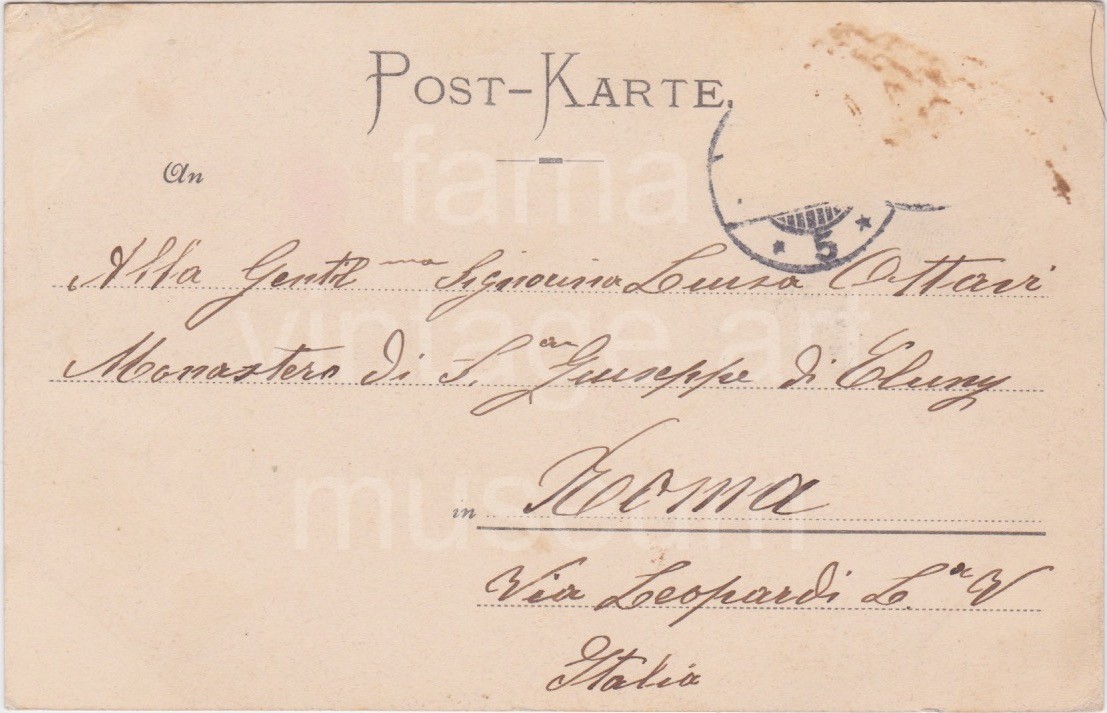 POST-KARTE.
An
Alla Gentil ma Signorina Luisa Ottavi
Monastero di S. an Giuseppe di Cluny
in Roma
Via Leopardi L. a V
Italia
* 5 *
fama
vintage art
museum